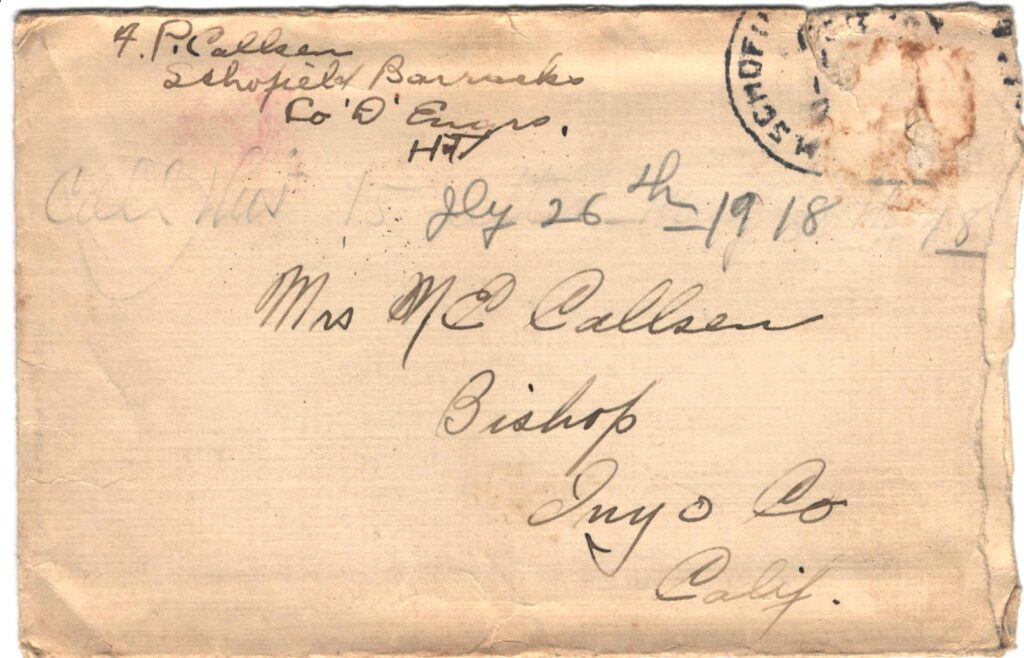 A. P. Callsen
Schofield Barracks
Co 'D' Engrs.
HT
SCHOFI
Jly 26th 1918
18
Mrs M E Callsen
Bishop
Inyo Co
Calif.